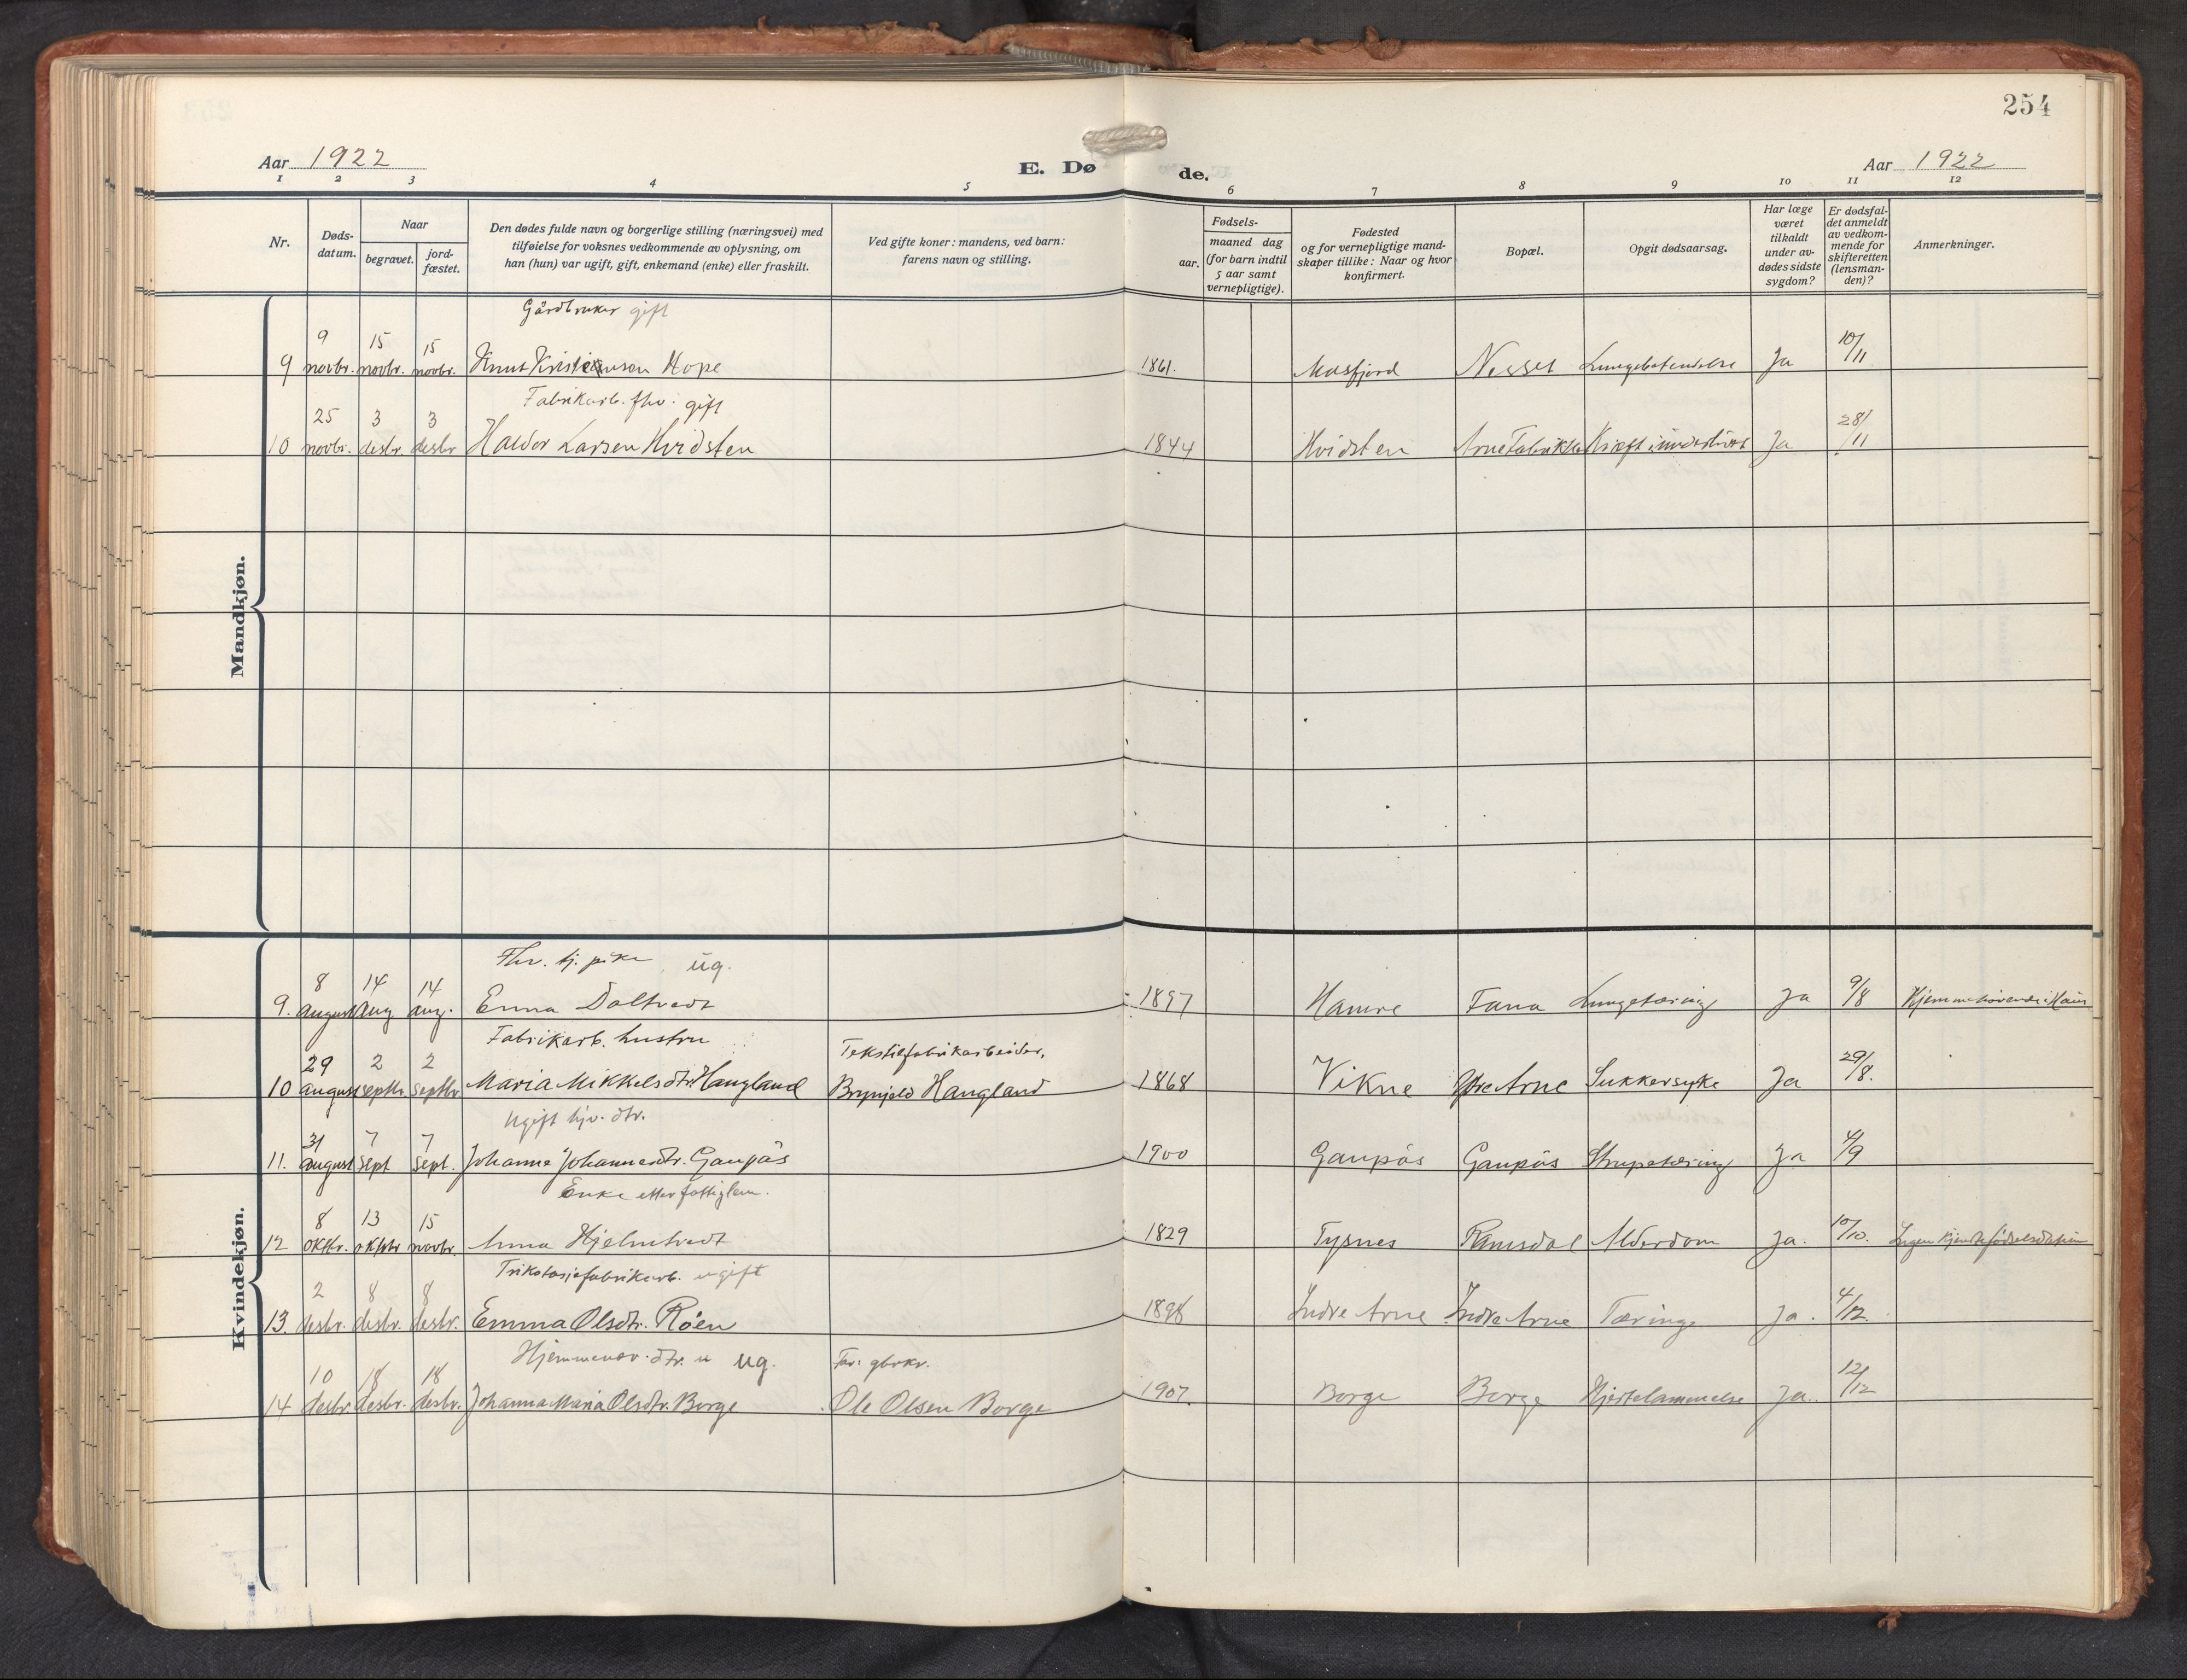 254
Aar 1922
E. Dø
de.
Aar 1922
1 2 3 4 5 6 7 8 9 10 11 12
Nr.
Døds-
datum.
Naar
begravet.
jord-
fæstet.
Den dødes fulde navn og borgerlige stilling (næringsvei) med
tilføielse for voksnes vedkommende av oplysning, om
han (hun) var ugift, gift, enkemand (enke) eller fraskilt.
Ved gifte koner: mandens, ved barn:
farens navn og stilling.
Fødsels-
aar.
maaned dag
(for barn indtil
5 aar samt
vernepligtige).
Fødested
og for vernepligtige mand-
skaper tillike: Naar og hvor
konfirmert.
Bopæl.
Opgit dødsaarsag.
Har læge
været
tilkaldt
under av-
dødes sidste
sygdom?
Er dødsfal-
det anmeldt
av vedkom-
mende for
skifteretten
(lensman-
den)?
Anmerkninger.
Mandkjøn.
Gårdbruker gift
9 15 15 10/11
9 novbr. novbr. novbr. Knut Hope 1861. Masfjord Nesset Lungebetendelse Ja
Fabrikarb. fhv. gift
25 3 3 28/11
10 novbr. desbr. desbr Haldor Larsen Hvidsten 1844 Hvidsten Arne Kræft i Ja
Kvindekjøn.
Fhv. tj. pike, ug.
8 14 14 9/8
9. august aug aug. Enna Daltvedt 1897 Hamre Fana Lungetæring Ja
Fabrikarb. hustru
Tekstilfabrikarbeider,
29 2 2 29/8.
10 august septbr. septbr. Maria Mikkelsdtr. Haugland Brynjulv Haugland 1868 Vikne Ytre Arne Sukkersyke Ja
Ugift hjv. dtr.
31 7 7 4/9
11. august sept sept. Johanna Johannesdtr. Gaupås 1900 Gaupås Gaupås Strupetæring Ja
Enke etter fattiglem.
8 13 15 10/10.
12 oktbr. oktbr novbr. Anna Hjelmtvedt 1829 Tysnes Ramsdal Alderdom Ja. Ingen kjendt fødselsdatum
Trikotasjefabrikarb. ugift
2 8 8 4/12.
13. desbr. desbr. desbr. Emma Olsdtr. Röen 1898 Indre Arne Indre Arne Tæring Ja.
Hjemmevær. dtr. ug.
Far: gbrkr.
10 18 18 12/12
14 desbr. desbr. desbr. Johanna Maria Olsdtr. Borge Ole Olsen Borge 1907. Borge Borge Hjertelammelse Ja.